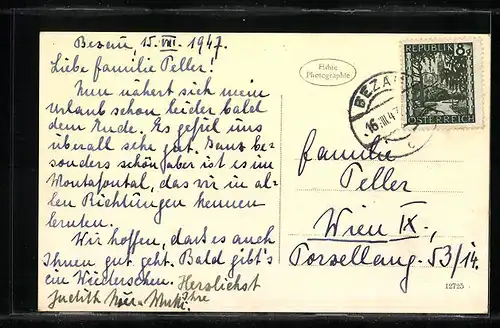 Bezau, 15. VIII. 1947.
Liebe Familie Teller!
Nun nähert sich mein
Urlaub schon leider bald
dem Ende. Es gefiel uns
überall sehr gut. Ganz be-
sonders schön aber ist es im
Montafontal, das wir in al-
len Richtungen kennen
lernten.
Wir hoffen, dass es auch
Ihnen gut geht. Bald gibt's
ein Wiedersehen. Herzlichst
Ihre
Judith
Echte
Photographie
REPUBLIK 8
ÖSTERREICH
BEZAU
16.VIII.47
c
Familie
Teller
Wien IX.,
Porzellang. 53/14.
12725